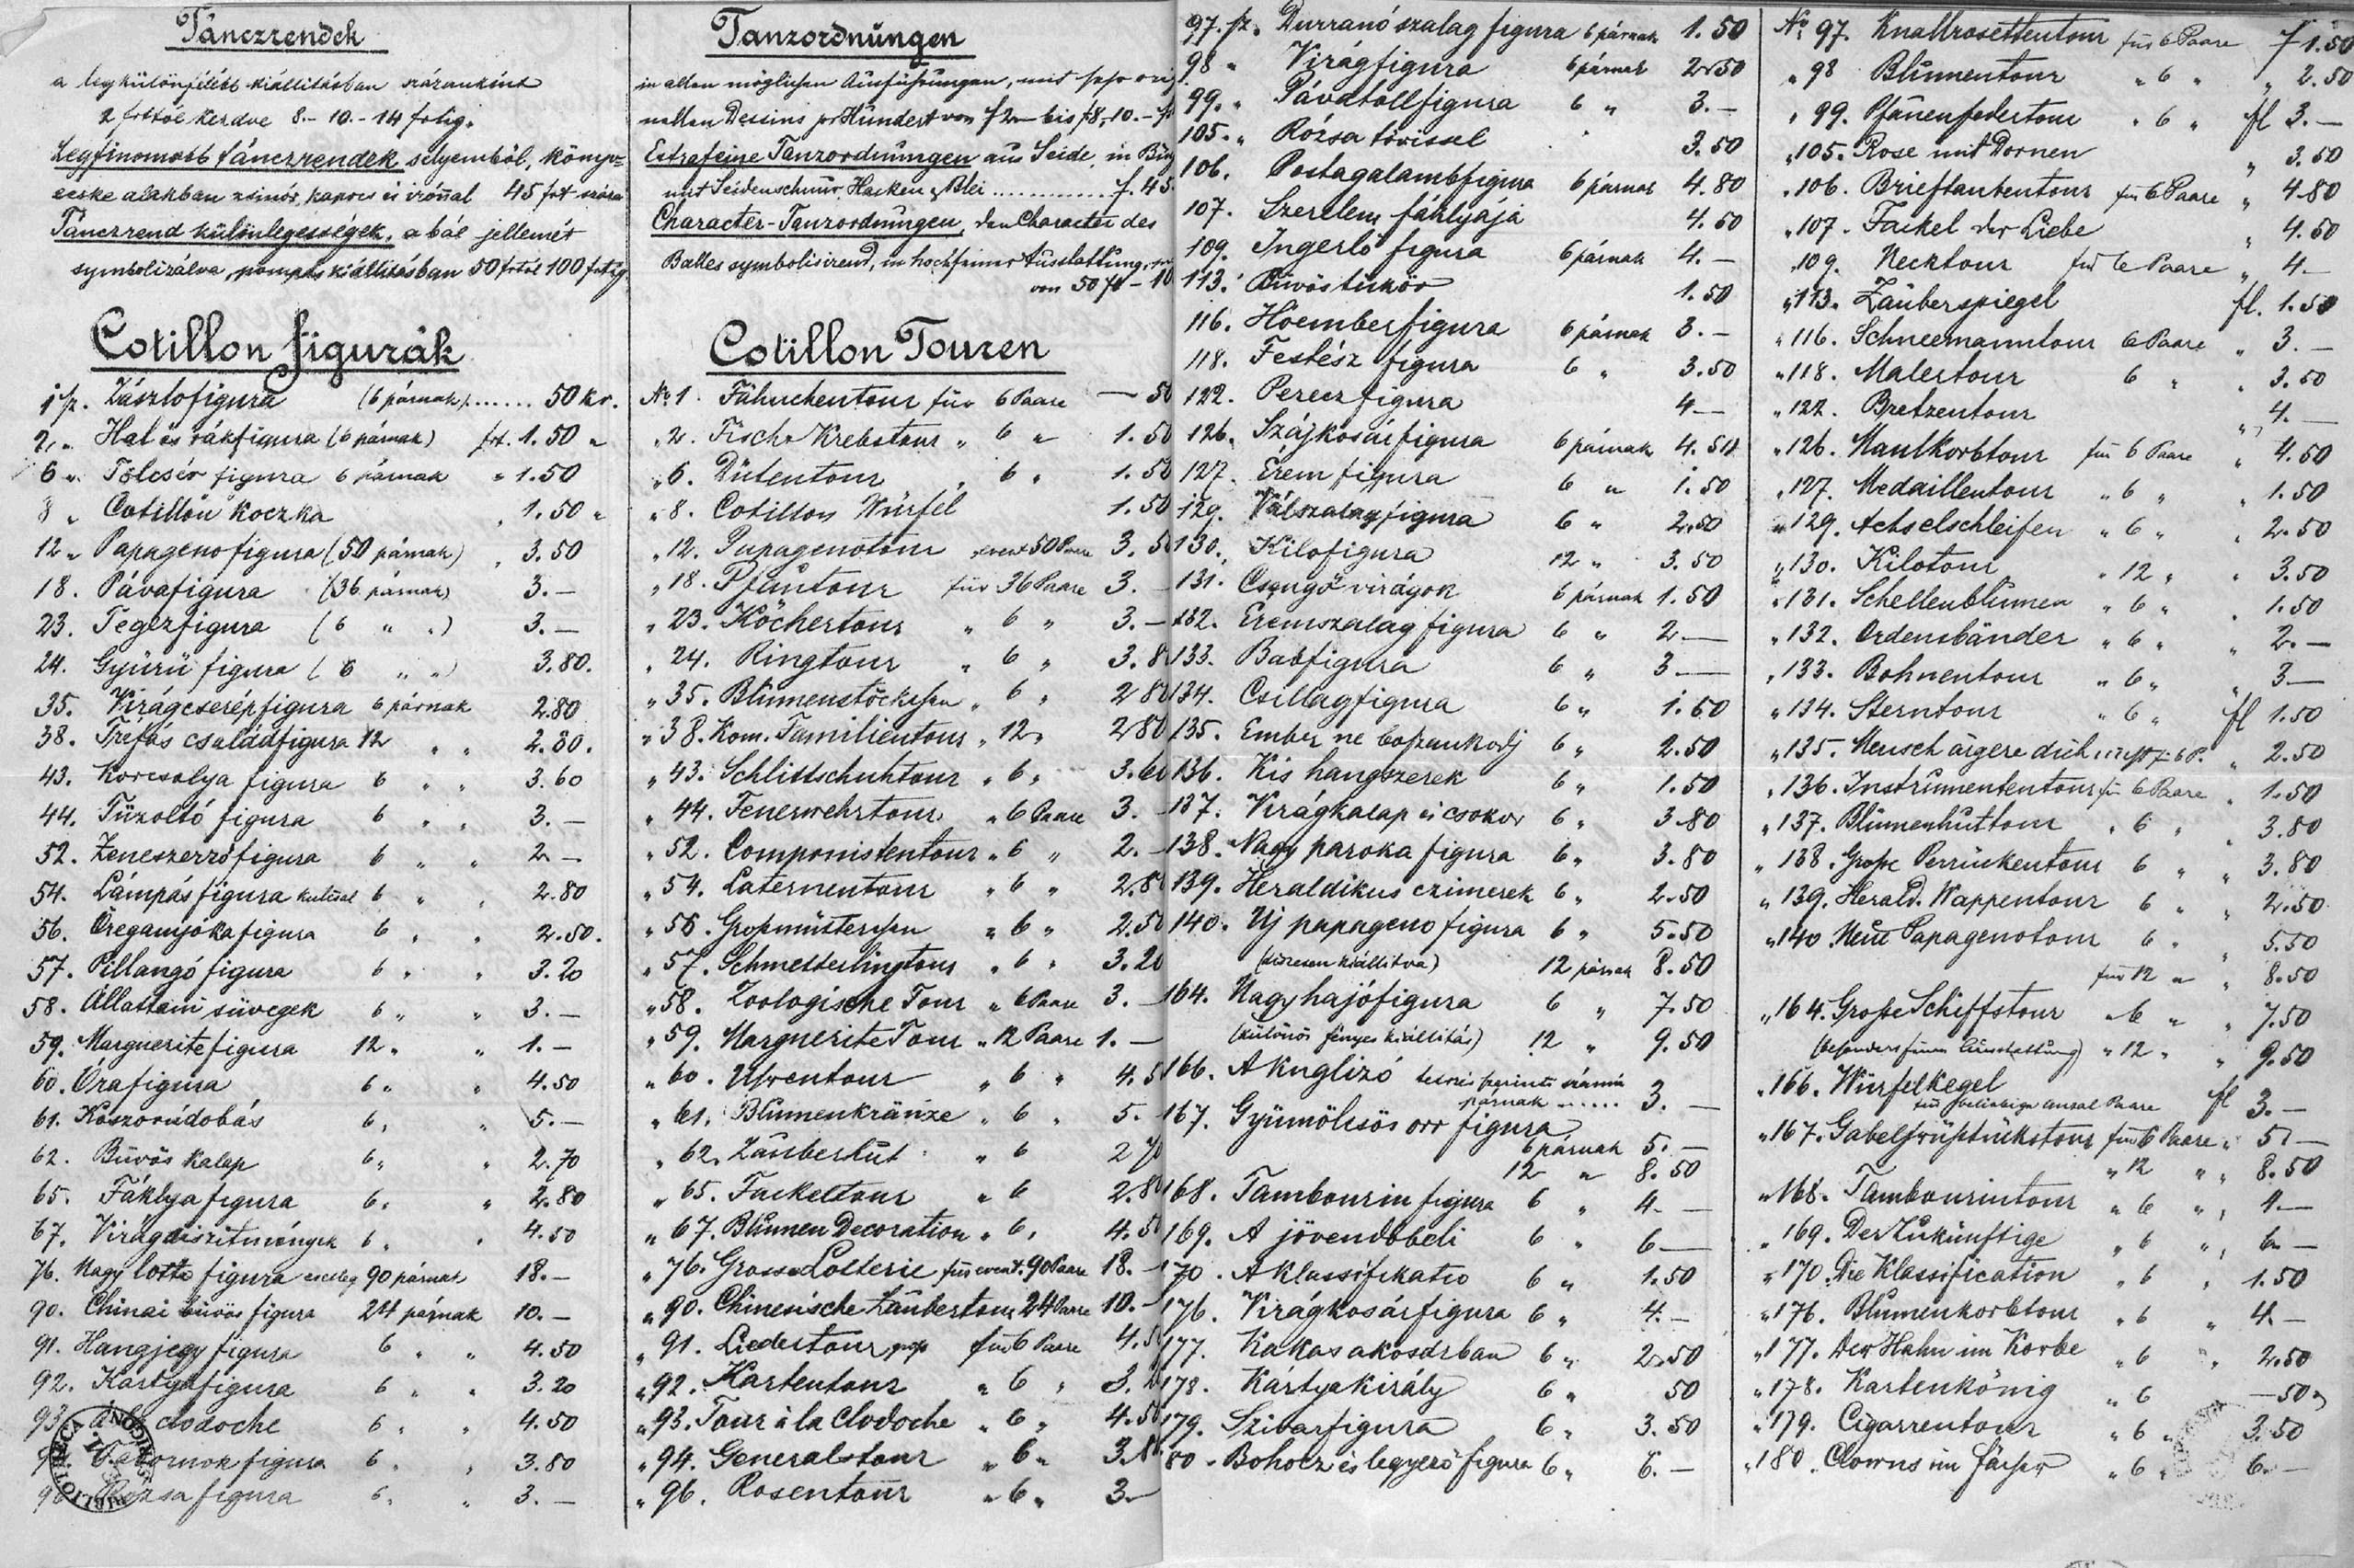 Tánczrendek
a legkülönfélébb kiállitásban százankint
2 frttól kezdve 8.- 10.- 14 frtig.
Legfinomabb tánczrendek selyemből, könyv=
ecske alakban zsinór, kapocs és irónnal 45 frt száza
Tánczrend különlegességek, a bál jellemét
symbolizálva, pompás kiállitásban 50 frtól 100 frtig
Cotillon figurák
1 sz. Zászlófigura (6 párnak) ...... 50 kr.
2 „ Hal és rákfigura (6 párnak) frt. 1.50 „
6 „ Tölcsér figura 6 párnak „ 1.50
8 „ Cotillon Koczka „ 1.50 „
12 „ Papagenofigura (50 párnak) „ 3.50
18. Pávafigura (36 párnak) 3.—
23. Tegezfigura (6 „ „) 3.—
24. Gyürü figura (6 „ „) 3.80.
35. Virágcserépfigura 6 párnak 2.80
38. Tréfás családfigura 12 „ „ 2.80.
43. Korcsolya figura 6 „ „ 3.60
44. Tüzoltó figura 6 „ „ 3.—
52. Zeneszerzőfigura 6 „ „ 2.—
54. Lámpás figura 6 „ „ 2.80
56. Öreganyókafigura 6 „ „ 2.50.
57. Pillangó figura 6 „ „ 3.20
58. Állattani süvegek 6 „ „ 3.—
59. Margueritefigura 12 „ „ 1.—
60. Órafigura 6 „ „ 4.50
61. Koszorúdobás 6 „ „ 5.—
62. Büvös kalap 6 „ „ 2.70
65. Fáklya figura 6 „ „ 2.80
67. Virágdiszitmények 6 „ „ 4.50
76. Nagy lotto figura esetleg 90 párnak 18.—
90. Chinai büvös figura 24 párnak 10.—
91. Hangjegy figura 6 „ „ 4.50
92. Kártyafigura 6 „ „ 3.20
93. à la clodoche 6 „ „ 4.50
94. Tábornok figura 6 „ „ 3.80
96. Rózsa figura 6 „ „ 3.—
Tanzordnungen
in allen möglichen Ausführungen, mit sehr ori
nellen Dessins pr Hundert von f 2 — bis f 8,- 10.-
Extrafeine Tanzordnungen aus Seide, in
mit Seidenschnur, Hacken & Blei ............ f. 45
Character-Tanzordnungen, den Character des
Balles symbolisirend, in hochfeiner Ausstattung,
von 50 fl - 10
Cotillon Touren
No. 1. Fähnchentour für 6 Paare — 50
„ 2. Fisch & Krebstour „ 6 „ 1.50
„ 6. Dütentour „ 6 „ 1.50
„ 8. Cotillon Würfel 1.50
„ 12. Papagenotour event 50 Paare 3.50
„ 18. Pfautour für 36 Paare 3.—
„ 23. Köchertour „ 6 „ 3.—
„ 24. Ringtour „ 6 „ 3.8
„ 35. Blumenstöckchen „ 6 „ 2 80
„ 38. Kom. Familientour „ 12 „ 2 80
„ 43. Schlittschuhtour „ 6 „ 3.60
„ 44. Feuerwehrtour „ 6 Paare 3.—
„ 52. Componistentour „ 6 „ 2.—
„ 54. Laternentour „ 6 „ 2.80
„ 56. Großmütterchen „ 6 „ 2.50
„ 57. Schmetterlingtour „ 6 „ 3.20
„ 58. Zoologische Tour „ 6 Paare 3.—
„ 59. Marguerite Tour „ 12 Paare 1.—
„ 60. Uhrentour „ 6 „ 4.5
„ 61. Blumenkränze „ 6 „ 5.-
„ 62. Zauberhut „ 6 2 70
„ 65. Fackeltour „ 6 2.80
„ 67. Blumen Decoration „ 6 „ 4.50
„ 76. Grosse Lotterie für event. 90 Paare 18.—
„ 90. Chinesische Zaubertour 24 Paare 10.—
„ 91. Liedertour für 6 Paare 4.5
„ 92. Kartentour „ 6 „ 3.2
„ 93. Tour à la Clodoche „ 6 „ 4.50
„ 94. Generalstour „ 6 „ 3.8
„ 96. Rosentour „ 6 „ 3—
97. sz. Durranó szalag figura 6 párnak 1.50
98 „ Virágfigura 6 párnak 2.50
99. „ Pávatollfigura 6 „ 3.—
105. „ Rózsa tövissel 3.50
106. Postagalambfigura 6 párnak 4.80
107. Szerelem fáklyája 4.50
109. Ingerlő figura 6 párnak 4.—
113. Büvöstükör 1.50
116. Hóemberfigura 6 párnak 3.—
118. Festész figura 6 „ 3.50
122. Pereczfigura 4—
126. Szájkosárfigura 6 párnak 4.50
127. Érem figura 6 „ 1.50
129. Válszalagfigura 6 „ 2.50
130. Kilofigura 12 „ 3.50
131. Csengő virágok 6 párnak 1.50
132. Éremszalag figura 6 „ 2.—
133. Babfigura 6 „ 3—
134. Csillagfigura 6 „ 1.50
135. Ember ne boszankodj 6 „ 2.50
136. Kis hangszerek 6 „ 1.50
137. Virágkalap és csokor 6 „ 3.80
138. Nagy paroka figura 6 „ 3.80
139. Heraldikus czimerek 6 „ 2.50
140. Uj papageno figura 6 „ 5.50
(diszesen kiállitva) 12 párnak 8.50
164. Nagy hajófigura 6 „ 7.50
(különös fényes kiállitás) 12 „ 9.50
166. A Kuglizó tetszés szerinti számú
párnak ...... 3.—
167. Gyümölcsös orr figura
6 párnak 5.—
12 „ 8.50
168. Tambourin figura 6 „ 4.—
169. A jövendőbeli 6 „ 6—
170. A klassifikatio 6 „ 1.50
176. Virágkosárfigura 6 „ 4.—
177. Kakas a kosárban 6 „ 2.50
178. Kartya Király 6 „ 50
179. Szivarfigura 6 „ 3.50
80. Bohócz és legyező figura 6 „ 6.—
No. 97. Knallrosettentour für 6 Paare f 1.50
„ 98 Blumentour „ 6 „ „ 2.50
„ 99. Pfauenfedertour „ 6 „ fl 3.—
„ 105. Rose mit Dornen „ 3.50
„ 106. Brieftaubentour für 6 Paare „ 4.80
„ 107. Fackel der Liebe „ 4.50
„ 109. Necktour für 6 Paare „ 4.—
„ 113. Zauberspiegel fl. 1.50
„ 116. Schneemanntour 6 Paare „ 3.—
„ 118. Malertour 6 „ „ 3.50
„ 122. Bretzentour „ 4.—
„ 126. Maulkorbtour für 6 Paare „ 4.50
„ 127. Medaillentour „ 6 „ „ 1.50
„ 129. Achselschleifen „ 6 „ „ 2.50
„ 130. Kilotour „ 12 „ „ 3.50
„ 131. Schellenblumen „ 6 „ „ 1.50
„ 132. Ordensbänder „ 6 „ „ 2.—
„ 133. Bohnentour „ 6 „ „ 3—
„ 134. Sterntour „ 6 „ fl 1.50
„ 135. Mensch ärgere dich nicht f. 6 P. „ 2.50
„ 136. Instrumententour für 6 Paare „ 1.50
„ 137. Blumenhuttour „ 6 „ „ 3.80
„ 138. Große Perrückentour 6 „ „ 3.80
„ 139. Herald. Wappentour 6 „ „ 2.50
„ 140. Neue Papagenotour 6 „ „ 5.50
für 12 „ „ 8.50
„ 164. Große Schiffstour „ 6 „ „ 7.50
(besonders feine Ausstattung) „ 12 „ „ 9.50
„ 166. Würfelkegel
für beliebige Anzal Paare fl 3.—
„ 167. Gabelfrühstückstour für 6 Paare „ 5.—
„ 12 „ „ 8.50
„ 168. Tambourintour „ 6 „ „ 4.—
„ 169. Der Zukünftige „ 6 „ „ 6.—
„ 170. Die Klassification „ 6 „ 1.50
„ 176. Blumenkorbtour „ 6 „ 4.—
„ 177. Der Hahn im Korbe „ 6 „ 2.50
„ 178. Kartenkönig „ 6 —50
„ 179. Cigarrentour „ 6 „ 3.50
„ 180. Clowns im Fächer „ 6 „ 6.—